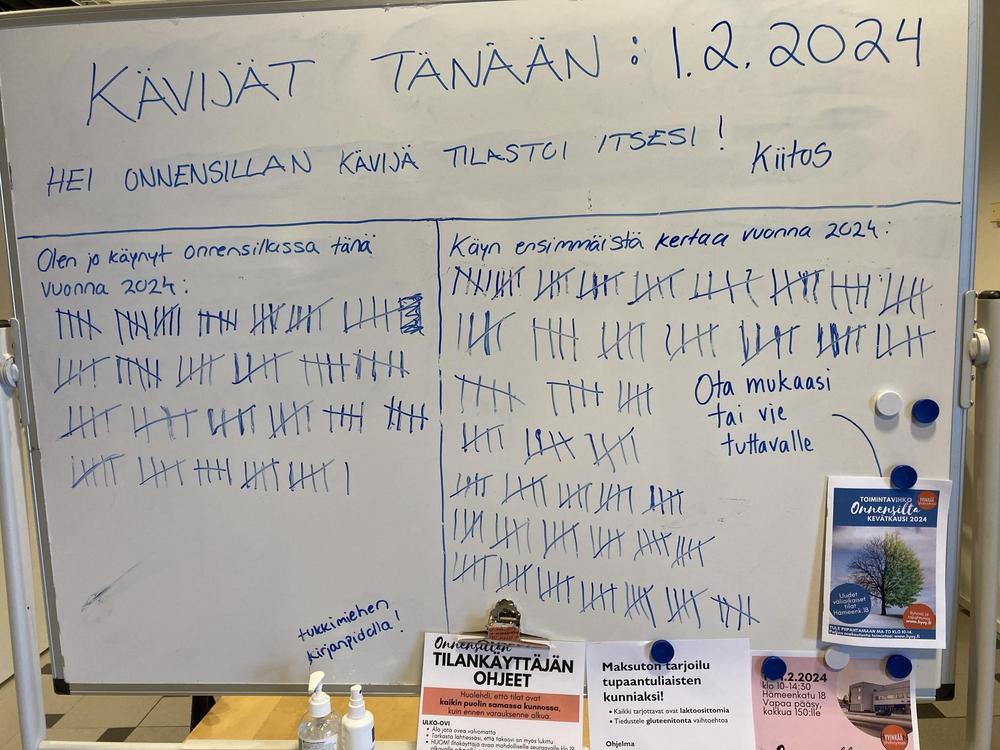 KÄVIJÄT TÄNÄÄN: 1.2.2024
HEI ONNENSILLAN KÄVIJÄ TILASTOI ITSESI! Kiitos
Olen jo käynyt onnensillassa tänä
vuonna 2024:
Käyn ensimmäistä kertaa vuonna 2024:
Ota mukaasi
tai vie
tuttavalle
tukkimiehen
kirjanpidolla!
TOIMINTAVIHKO
Onnensilta
KEVÄTKAUSI 2024
Uudet
väliaikaiset
tilat
Hämeenk.18
TULE PIIPAHTAMAAN MA-TO KLO 10-14.
Onnensillan
TILANKÄYTTÄJÄN
OHJEET
Huolehdi, että tilat ovat
kaikin puolin samassa kunnossa,
kuin ennen varauksenne alkua.
ULKO-OVI
Älä jätä ovea valvomatta
Maksuton tarjoilu
tupaantuliaisten
kunniaksi!
Kaikki tarjottavat ovat laktoosittomia
Tiedustele gluteenitonta vaihtoehtoa
Ohjelma
.2.2024
klo 10-14:30
Hämeenkatu 18
Vapaa pääsy,
kakkua 150:lle